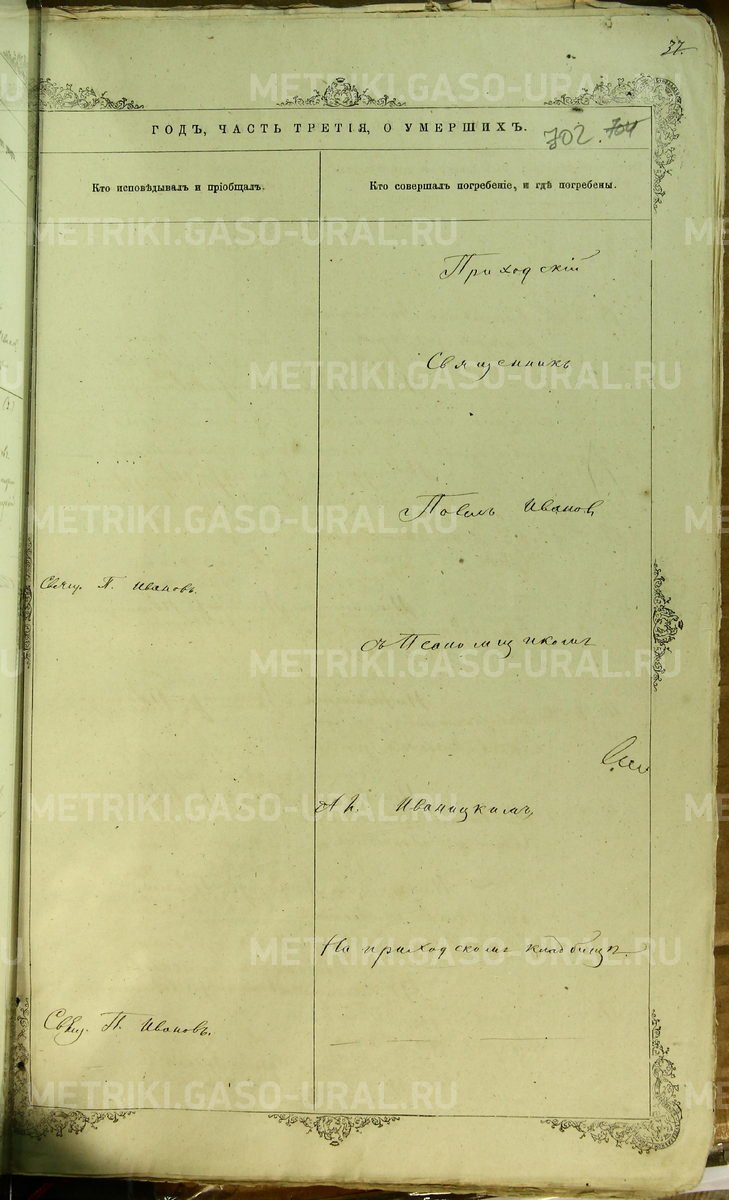 37.
ГОДЪ, ЧАСТЬ ТРЕТІЯ, О УМЕРШИХЪ.
702. 704
Кто исповѣдывалъ и пріобщалъ.
Кто совершалъ погребеніе, и гдѣ погребены.
Приходскій
Священникъ
Павелъ Ивановъ,
Свящ. П. Ивановъ.
съ Псаломщикомъ
Иваницкимъ,
На приходскомъ кладбищѣ.
Свящ. П. Ивановъ.
METRIKI.GASO-URAL.RU